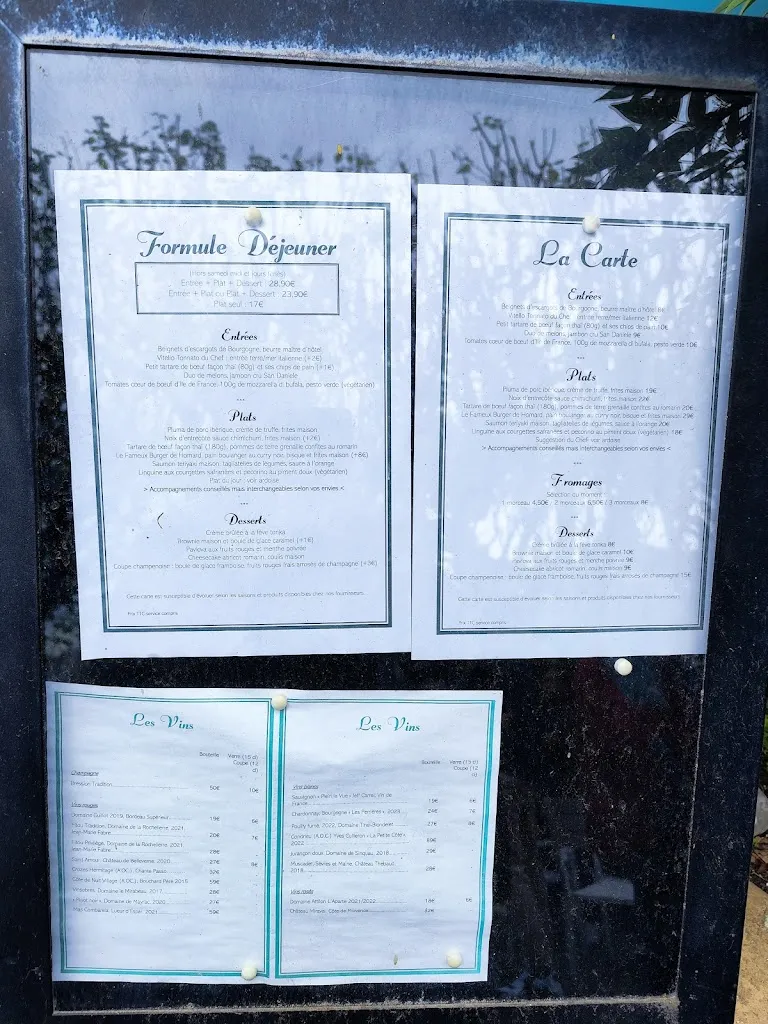 Formule Déjeuner
(hors samedi midi et jours fériés)
Entrée + Plat + Dessert : 28,90€
Entrée + Plat ou Plat + Dessert : 23,90€
Plat seul : 17€
Entrées
Beignets d'escargots de Bourgogne, beurre maître d'hôtel
Vitello Tonnato du Chef : entrée terre/mer italienne (+2€)
Petit tartare de bœuf façon thaï (80g) et ses chips de pain (+1€)
Duo de melons, jambon cru San Daniele
Tomates cœur de bœuf d'Ile de France, 100g de mozzarella di bufala, pesto verde (végétarien)
***
Plats
Pluma de porc ibérique, crème de truffe, frites maison
Noix d'entrecôte sauce chimichurri, frites maison (+2€)
Tartare de bœuf façon thaï (180g), pommes de terre grenaille confites au romarin
Le Fameux Burger de Homard, pain boulanger au curry noir, bisque et frites maison (+8€)
Saumon teriyaki maison, tagliatelles de légumes, sauce à l'orange
Linguine aux courgettes safranées et pecorino au piment doux (végétarien)
Plat du jour : voir ardoise
> Accompagnements conseillés mais interchangeables selon vos envies <
***
Desserts
Crème brûlée à la fève tonka
Brownie maison et boule de glace caramel (+1€)
Pavlova aux fruits rouges et menthe poivrée
Cheesecake abricot romarin, coulis maison
Coupe champenoise : boule de glace framboise, fruits rouges frais arrosés de champagne (+3€)
Cette carte est susceptible d'évoluer selon les saisons et produits disponibles chez nos fournisseurs.
Prix TTC service compris
La Carte
Entrées
Beignets d'escargots de Bourgogne, beurre maître d'hôtel 8€
Vitello Tonnato du Chef : entrée terre/mer italienne 12€
Petit tartare de bœuf façon thaï (80g), et ses chips de pain 10€
Duo de melons, jambon cru San Daniele 9€
Tomates cœur de bœuf d'Ile de France, 100g de mozzarella di bufala, pesto verde 10€
***
Plats
Pluma de porc ibérique, crème de truffe, frites maison 19€
Noix d'entrecôte sauce chimichurri, frites maison 22€
Tartare de bœuf façon thaï (180g), pommes de terre grenaille confites au romarin 20€
Le Fameux Burger de Homard, pain boulanger au curry noir, bisque et frites maison 29€
Saumon teriyaki maison, tagliatelles de légumes, sauce à l'orange 20€
Linguine aux courgettes safranées et pecorino au piment doux (végétarien) 18€
Suggestion du Chef: voir ardoise
> Accompagnements conseillés mais interchangeables selon vos envies <
***
Fromages
Sélection du moment :
1 morceau 4,50€ / 2 morceaux 6,50€ / 3 morceaux 8€
***
Desserts
Crème brûlée à la fève tonka 8€
Brownie maison et boule de glace caramel 10€
Pavlova aux fruits rouges et menthe poivrée 9€
Cheesecake abricot romarin, coulis maison 9€
Coupe champenoise : boule de glace framboise, fruits rouges frais arrosés de champagne 15€
Cette carte est susceptible d'évoluer selon les saisons et produits disponibles chez nos fournisseurs.
Prix TTC service compris
Les Vins
Bouteille Verre (15 cl)
Coupe (12
cl)
Champagne
Tradition 50€ 10€
Vins rouges
Domaine Guillot 2019, Bordeau Supérieur 19€ 5€
Tradition, Domaine de la Rochelierre, 2021,
Jean-Marie Fabre 20€ 7€
Privilège, Domaine de la Rochelierre, 2021,
Jean-Marie Fabre 28€
Saint Amour, Château de Bellevenue, 2020 27€ 8€
Crozes Hermitage (A.O.C.), 32€
Côte de Nuit Village, (A.O.C.), Bouchard Père 2015 59€
Vinsobres, Domaine le Mirabeau, 2017 28€
Domaine de 2020 27€
2021 59€
Les Vins
Bouteille Verre (15 cl)
Coupe (12
cl)
Vins blancs
Sauvignon « Plein la Vue » Vin de
France 19€ 6€
Chardonnay, Bourgogne « Les Perrières », 2021 24€ 7€
Pouilly fumé, 2022, Domaine 27€ 9€
Condrieu (A.O.C.) Yves Cuilleron « La Petite Côte »,
2022 69€
Jurançon doux, Domaine de 2018 29€
Muscadet, Sèvres et Maine, Château
2018 28€
Vins rosés
Domaine 2021/2022 18€ 6€
Château Miraval, Côte de Provence 32€